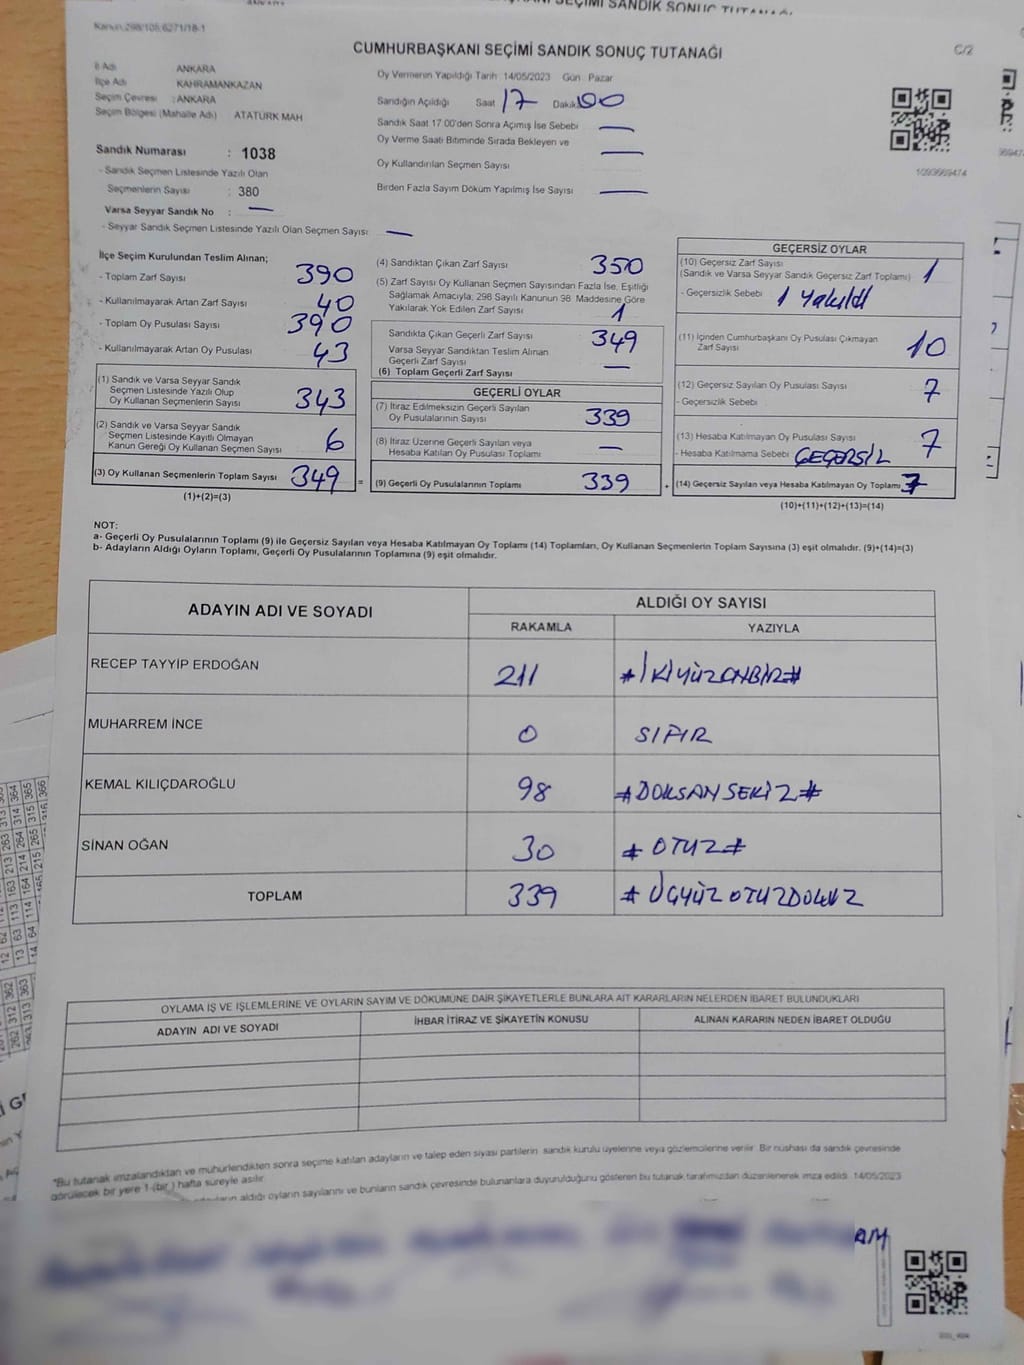 Kanun:298/105,6271/18-1
CUMHURBAŞKANI SEÇİMİ SANDIK SONUÇ TUTANAĞI
C/2
İl Adı ANKARA
İlçe Adı KAHRAMANKAZAN
Seçim Çevresi : ANKARA
Seçim Bölgesi (Mahalle Adı) ATATÜRK MAH
Sandık Numarası : 1038
- Sandık Seçmen Listesinde Yazılı Olan
Seçmenlerin Sayısı : 380
Varsa Seyyar Sandık No : —
- Seyyar Sandık Seçmen Listesinde Yazılı Olan Seçmen Sayısı —
Oy Vermenin Yapıldığı Tarih 14/05/2023 Gün Pazar
Sandığın Açıldığı Saat 17 Dakika 00
Sandık Saat 17:00'den Sonra Açılmış İse Sebebi —
Oy Verme Saati Bitiminde Sırada Bekleyen ve —
Oy Kullandırılan Seçmen Sayısı
Birden Fazla Sayım Döküm Yapılmış İse Sayısı —
1093669474
İlçe Seçim Kurulundan Teslim Alınan;
- Toplam Zarf Sayısı 390
- Kullanılmayarak Artan Zarf Sayısı 40
- Toplam Oy Pusulası Sayısı 390
- Kullanılmayarak Artan Oy Pusulası 43
(1) Sandık ve Varsa Seyyar Sandık
Seçmen Listesinde Yazılı Olup
Oy Kullanan Seçmenlerin Sayısı 343
(2) Sandık ve Varsa Seyyar Sandık
Seçmen Listesinde Kayıtlı Olmayan
Kanun Gereği Oy Kullanan Seçmen Sayısı 6
(3) Oy Kullanan Seçmenlerin Toplam Sayısı 349 =
(1)+(2)=(3)
(4) Sandıktan Çıkan Zarf Sayısı 350
(5) Zarf Sayısı Oy Kullanan Seçmen Sayısından Fazla İse, Eşitliği
Sağlamak Amacıyla; 298 Sayılı Kanunun 98. Maddesine Göre
Yakılarak Yok Edilen Zarf Sayısı 1
Sandıkta Çıkan Geçerli Zarf Sayısı 349
Varsa Seyyar Sandıktan Teslim Alınan
Geçerli Zarf Sayısı —
(6) Toplam Geçerli Zarf Sayısı
GEÇERLİ OYLAR
(7) İtiraz Edilmeksizin Geçerli Sayılan
Oy Pusulalarının Sayısı 339
(8) İtiraz Üzerine Geçerli Sayılan veya
Hesaba Katılan Oy Pusulası Toplamı —
(9) Geçerli Oy Pusulalarının Toplamı 339 +
GEÇERSİZ OYLAR
(10) Geçersiz Zarf Sayısı
(Sandık ve Varsa Seyyar Sandık Geçersiz Zarf Toplamı) 1
- Geçersizlik Sebebi 1 Yakıldı
(11) İçinden Cumhurbaşkanı Oy Pusulası Çıkmayan
Zarf Sayısı 10
(12) Geçersiz Sayılan Oy Pusulası Sayısı 7
- Geçersizlik Sebebi
(13) Hesaba Katılmayan Oy Pusulası Sayısı 7
- Hesaba Katılmama Sebebi GEÇERSİZ
(14) Geçersiz Sayılan veya Hesaba Katılmayan Oy Toplamı 7
(10)+(11)+(12)+(13)=(14)
NOT:
a- Geçerli Oy Pusulalarının Toplamı (9) ile Geçersiz Sayılan veya Hesaba Katılmayan Oy Toplamı (14) Toplamları, Oy Kullanan Seçmenlerin Toplam Sayısına (3) eşit olmalıdır. (9)+(14)=(3)
b- Adayların Aldığı Oyların Toplamı, Geçerli Oy Pusulalarının Toplamına (9) eşit olmalıdır.
ADAYIN ADI VE SOYADI ALDIĞI OY SAYISI
RAKAMLA YAZIYLA
RECEP TAYYİP ERDOĞAN 211 #İKİYÜZONBİR#
MUHARREM İNCE 0 SIFIR
KEMAL KILIÇDAROĞLU 98 #DOKSANSEKİZ#
SİNAN OĞAN 30 #OTUZ#
TOPLAM 339 #ÜÇYÜZOTUZDOKUZ
OYLAMA İŞ VE İŞLEMLERİNE VE OYLARIN SAYIM VE DÖKÜMÜNE DAİR ŞİKAYETLERLE BUNLARA AİT KARARLARIN NELERDEN İBARET BULUNDUKLARI
ADAYIN ADI VE SOYADI İHBAR İTİRAZ VE ŞİKAYETİN KONUSU ALINAN KARARIN NEDEN İBARET OLDUĞU
*Bu tutanak imzalandıktan ve mühürlendikten sonra seçime katılan adayların ve talep eden siyasi partilerin sandık kurulu üyelerine veya gözlemcilerine verilir. Bir nüshası da sandık çevresinde
görülecek bir yere 1 (bir ) hafta süreyle asılır.
aldığı oyların sayılarını ve bunların sandık çevresinde bulunanlara duyurulduğunu gösteren bu tutanak tarafımızdan düzenlenerek imza edildi. 14/05/2023